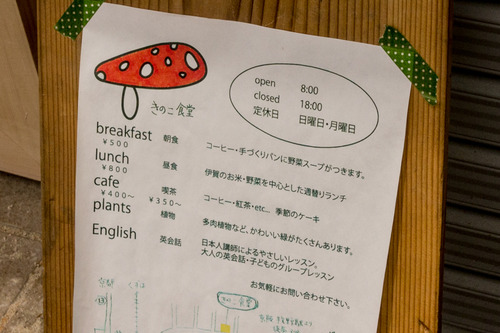 きのこ食堂
open 8:00
closed 18:00
定休日 日曜日・月曜日
breakfast 朝食
¥500
コーヒー・手づくりパンに野菜スープがつきます。
lunch 昼食
¥800
伊賀のお米・野菜を中心とした週替りランチ
cafe 喫茶
¥400～ ¥350～
コーヒー・紅茶・etc... 季節のケーキ
plants 植物
多肉植物など、かわいい緑がたくさんあります。
English 英会話
日本人講師によるやさしいレッスン。
大人の英会話・子どものグループレッスン
お気軽にお問い合わせ下さい。
きのこ食堂
京都